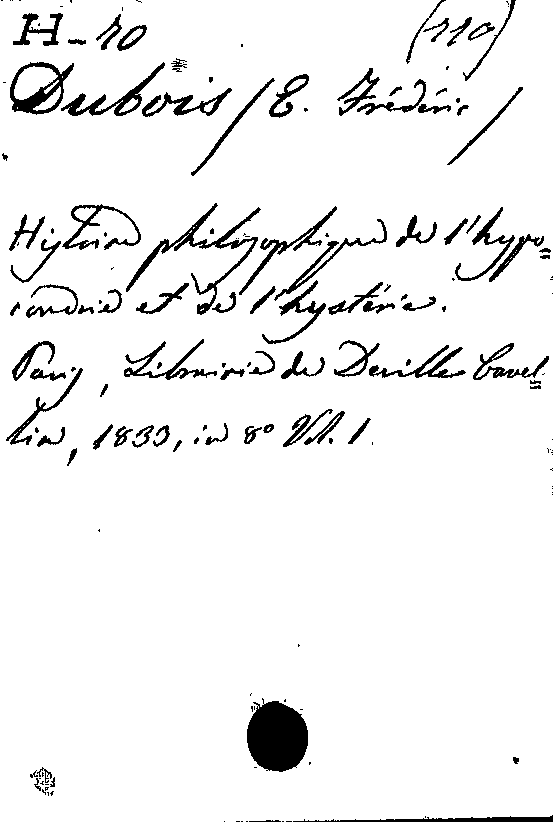 H-70 (110)
Dubois / E. Frédéric /
Histoire philosophique de l'hypo=
condrie et de l'hystérie.
Paris, Librairie de Deville Cavel=
lin, 1833, in 8º Vol. 1.